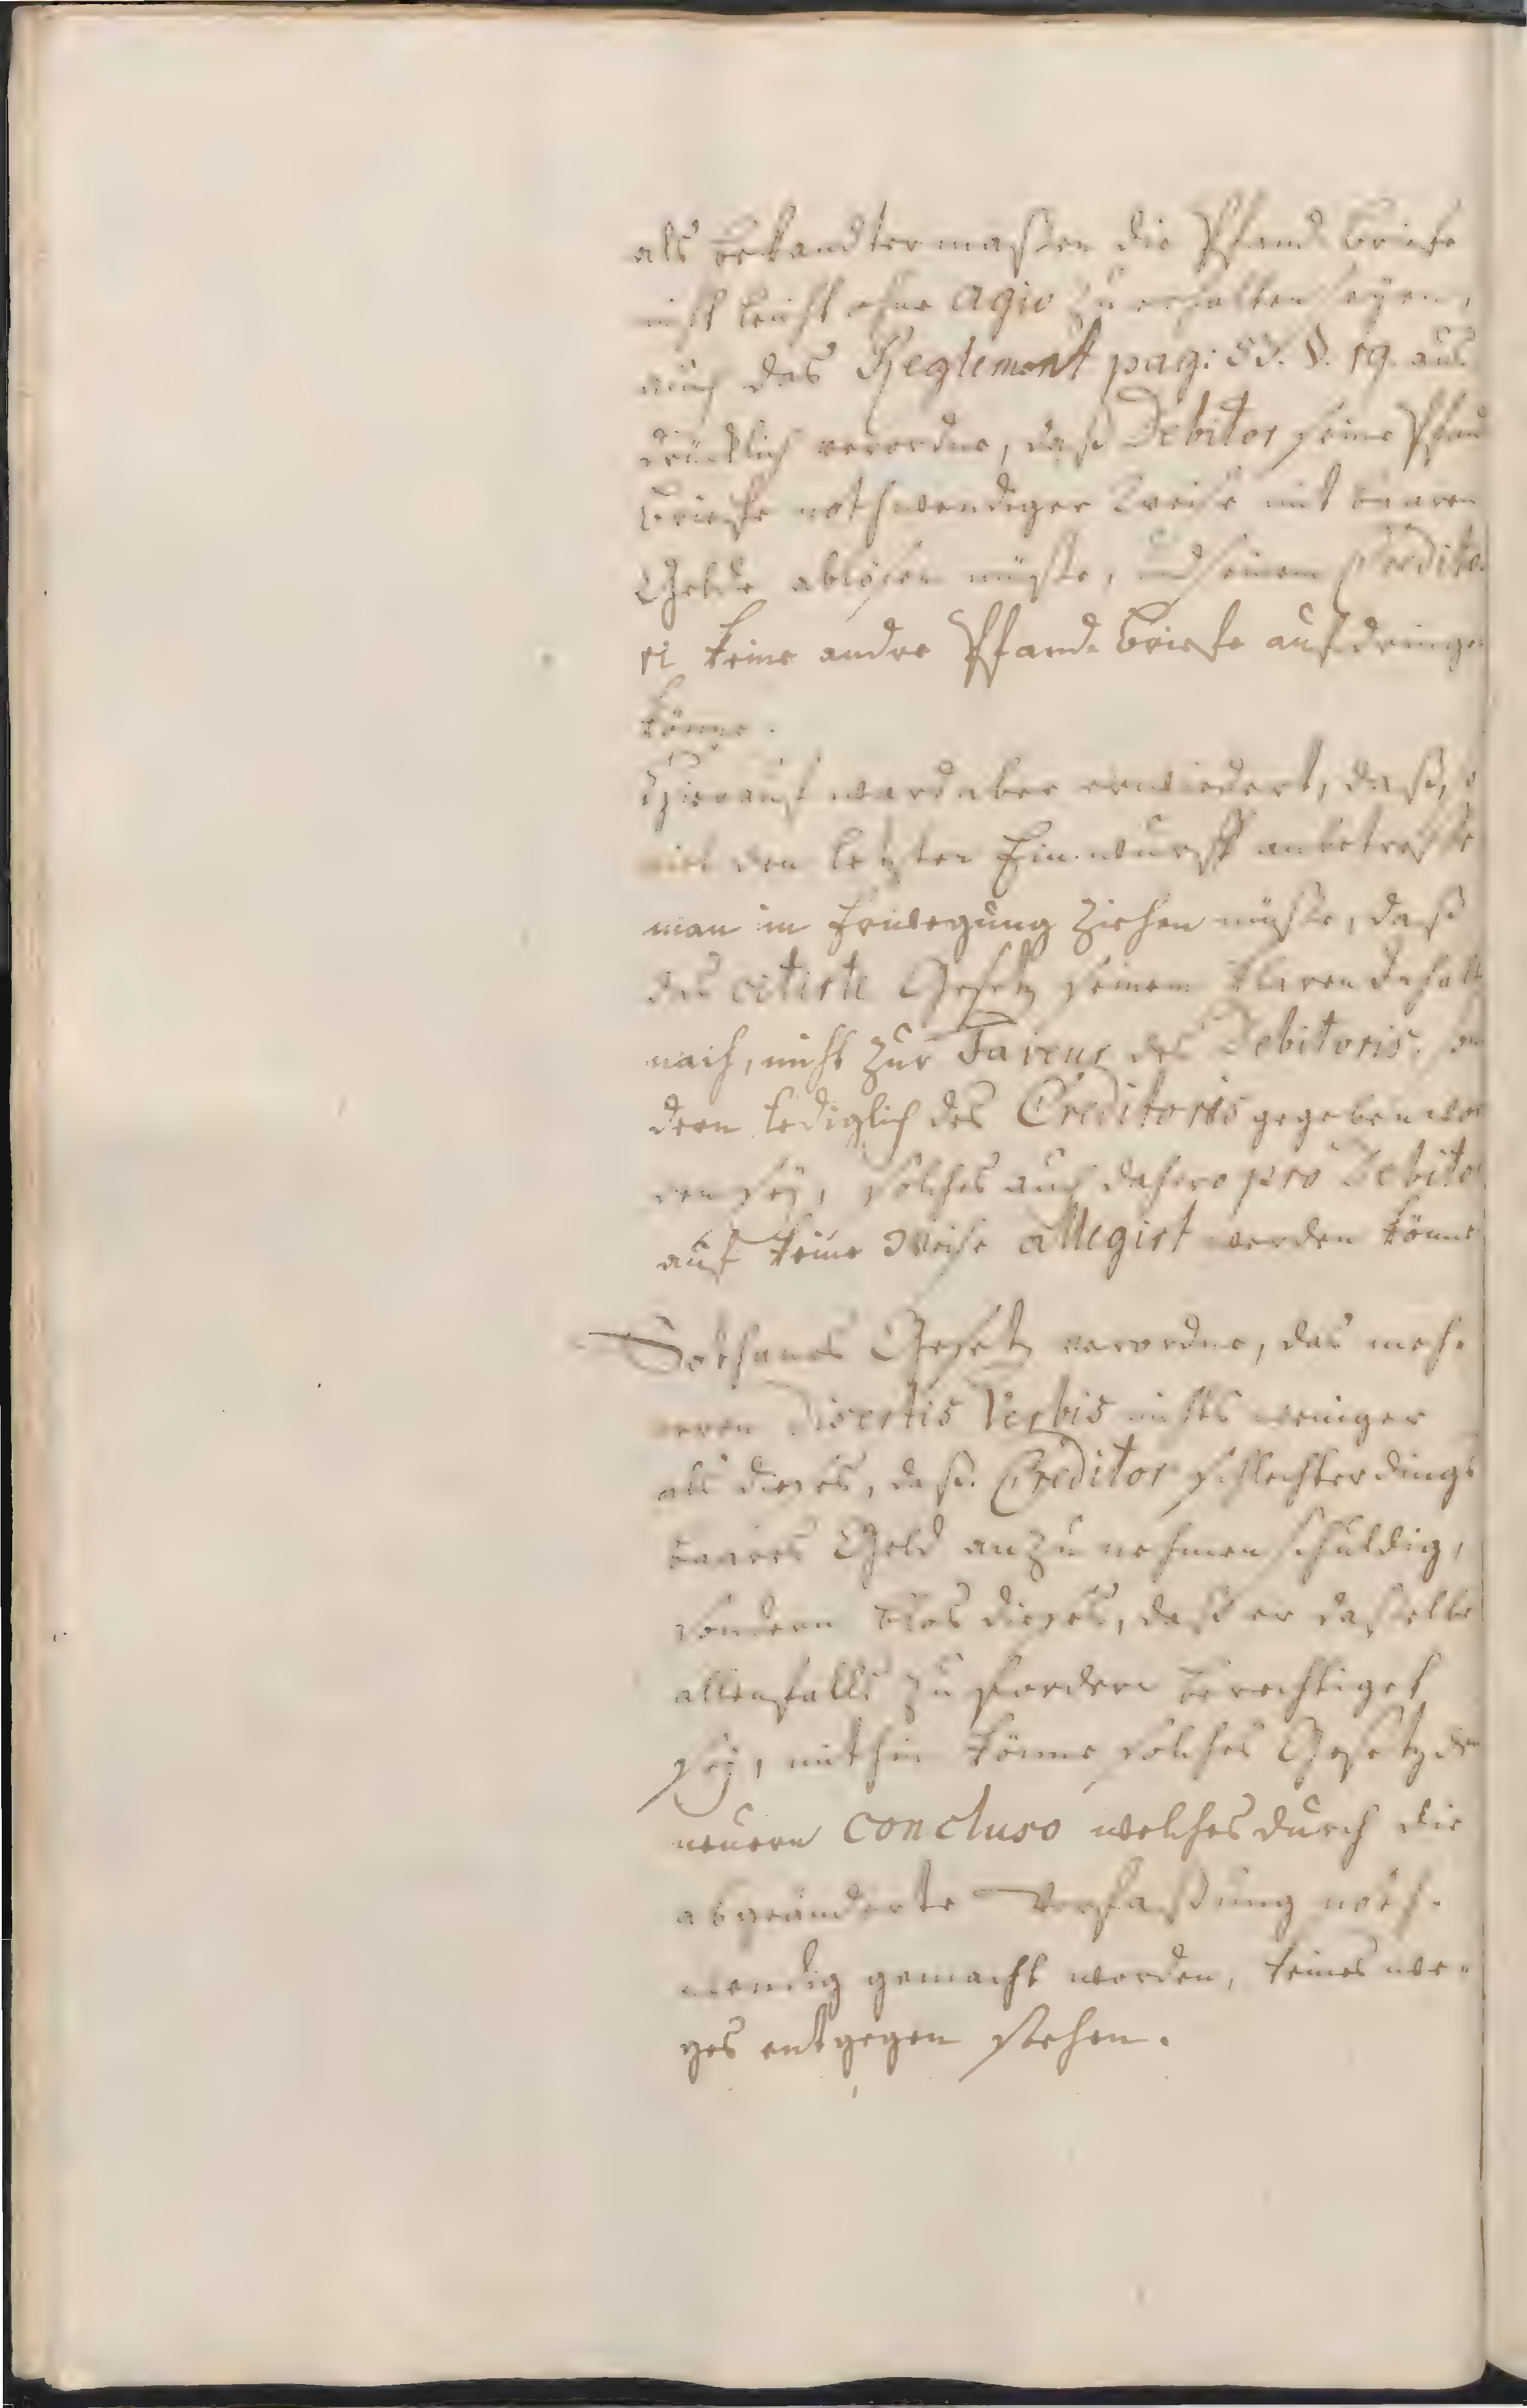 als bekandtermaßen die Pfand-Briefe
nicht leicht ohne Agio zu erhalten seyen,
auch das Reglement pag: 57. §. 19. aus-
drücklich verordne, daß Debitor seine Pfand
Briefe nothwendiger Weise mit baaren
Gelde ablösen müßte, und seinem Credito-
ri keine andre Pfand-Briefe aufdringen
könne.
Hierauf ward aber erwiedert, daß, so
viel den letzten Einwurff anbetreffe
man in Erwegung ziehen müßte, daß
das citirte Gesetz seinem klaren Inhalt
nach, nicht zur Faveur des Debitoris, son
dern lediglich des Creditoris gegeben wor
den sey, solches auch dahero pro Debito
auf keine Weise allegirt werden könne
Sothanes Gesetz verordne, das meh-
reren disertis Verbis nichts weniger
als dieses, daß Creditor schlechterdings
baares Geld anzunehmen schuldig,
sondern blos dieses, daß er dasselbe
allenfalls zu fordern berechtiget
sey, mithin könne solches Gesetz dem
neuern concluso welches durch die
abgeänderte Verfaßung noth-
wendig gemacht worden, keineswe-
ges entgegen stehen.